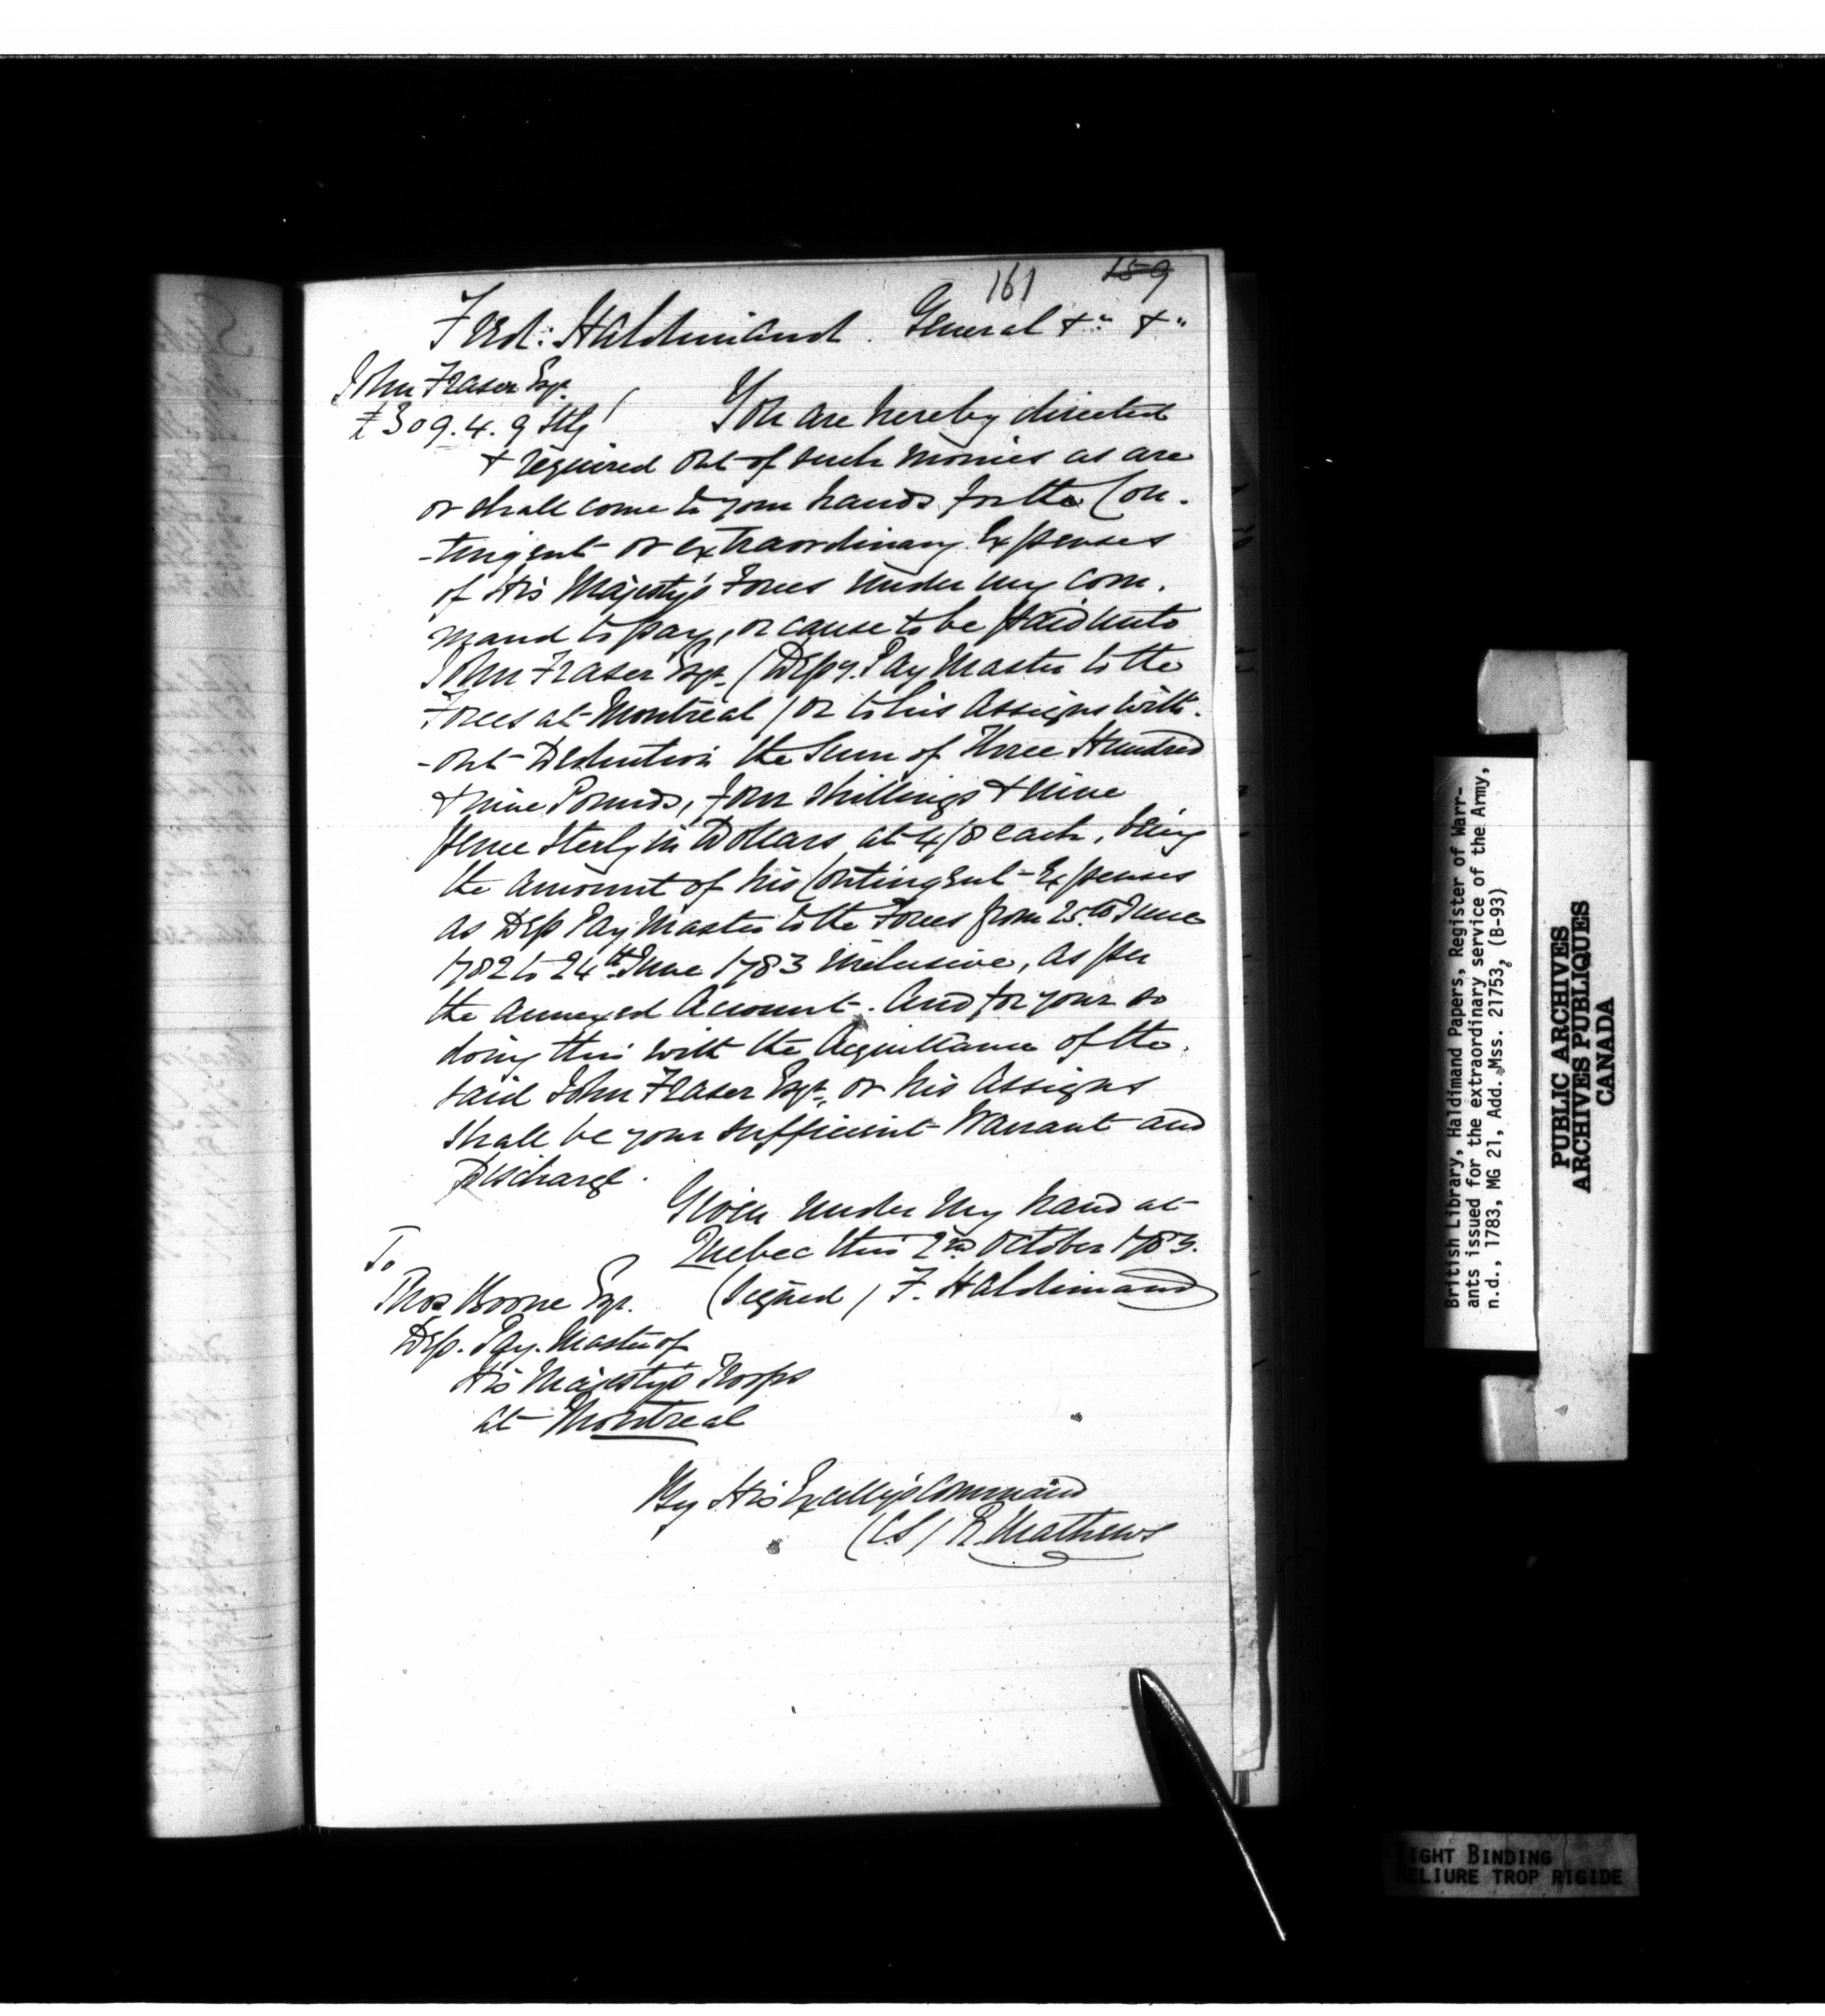 161 159
Fred: Haldimand. General &c &c
John Fraser Esqr.
£309.4.9 Stg
You are hereby directed
& required out of such monies as are
or shall come to your hands for the Con-
-tingent or extraordinary Expenses
of His Majesty's Forces under my com-
mand to pay, or cause to be paid unto
John Fraser Esqr. (Depy. Pay Master to the
Forces at Montreal) or to his Assigns with-
-out Deduction the Sum of Three Hundred
& nine Pounds, four shillings & nine
pence Sterlg in Dollars at 4/8 each, being
the amount of his Contingent Expenses
as Dep Pay Master to the Forces from 25th June
1782 to 24th June 1783 inclusive, as per
the annexed Account. And for your so
doing this with the Acquittance of the
said John Fraser Esqr. or his Assigns
shall be your sufficient Warrant and
Discharge.
Given under my hand at
Quebec this 2nd October 1783.
(signed) F. Haldimand
To
Thos Boone Esqr.
Dep. Pay. Master of
His Majesty's Troops
at Montreal
By His Excelly's Command
(C.S) R. Mathews
British Library, Haldimand Papers, Register of Warr-
ants issued for the extraordinary service of the Army,
n.d., 1783, MG 21, Add. Mss. 21753, (B-93)
PUBLIC ARCHIVES
ARCHIVES PUBLIQUES
CANADA
IGHT BINDING
ELIURE TROP RIGIDE